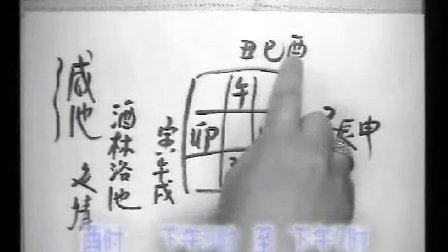 丑巳酉
咸池
酒林浴池
寅午戌
午
卯
辰申
下午 至 下午7时